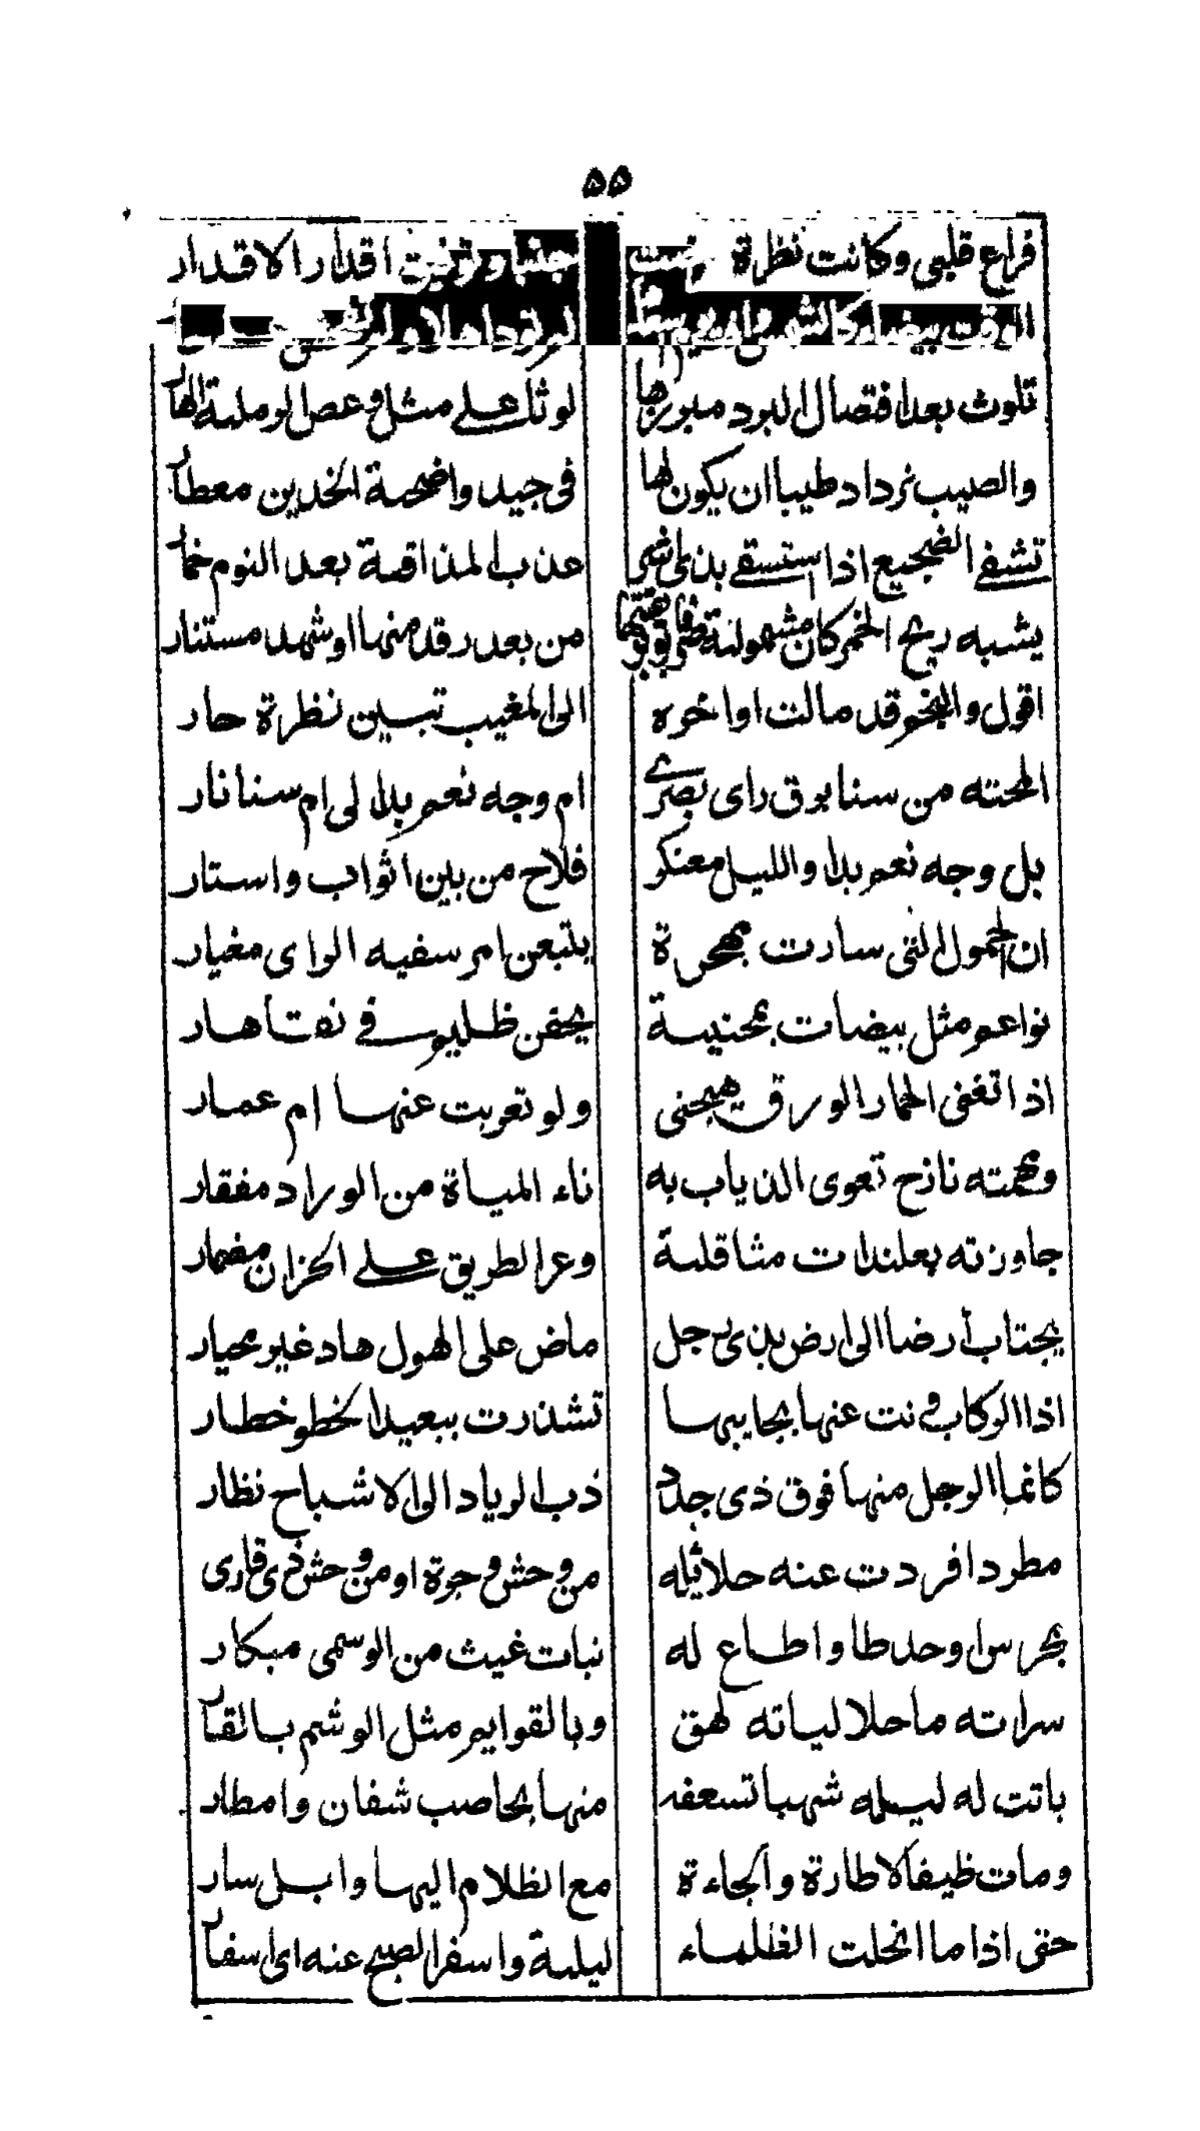 ۵۵
فراع قلبى وكانت نظرة عرضت حينا وتوفيق اقدار الاقدار
تلوث بعد افتضال البرد ميزرها لوثا على مثل دعص الرملة الهار
والطيب يزداد طيبا ان يكون لها فى جيد واضحة الخدين معطار
تشفى الضجيع اذا استسقى بذى اشر عذب المذاقة بعد النوم خمار
يشبه ريح الخمر كان مشمولة من بعد رقد منها او شهد مستنار
اقول والنجم قد مالت اواخره الى المغيب تبين نظرة حار
المحته من سنا برق راى بصرى ام وجه نعم بدا لى ام سنا نار
بل وجه نعم بدا والليل معتكر فلاح من بين اثواب واستار
ان الحمول التى سارت مهجرة يتبعن امر سفيه الراى مغيار
نواعم مثل بيضات بمحنية يحفن ظليم فى نقا هار
اذا تغنى الحمار الورق هيجنى ولو تعربت عنها ام عمار
ومهمته نازح تعوى الذياب به ناء المياة من الوراد مفقار
جاوزته بعلندات مثاقلة وعر الطريق على الحزان مضمار
يجتاب أرضا الى ارض بذى رجل ماض على الهول هاد غير محيار
اذا الركاب ونت عنها بجايبها تشذرت ببعيد الخطو خطار
كانما الرجل منها فوق ذى جدد ذب الرياد الى الاشباح نظار
مطرد افردت عنه حلائله من وحش وجرة او من وحش ذى قارى
بجرس وحد طا واطاع له نبات غيث من الوسمى مبكار
سراته ما خلا لباته لهق وبالقوايم مثل الوشم بالقار
باتت له ليله شهبا تسعفه منها بحاصب شفان وامطار
ومات ظيفا لاطارة وألجاءة مع الظلام اليها وابل سار
حتى اذا ما انجلت الظلماء ليلة واسفر الصبح عنه اى اسفار